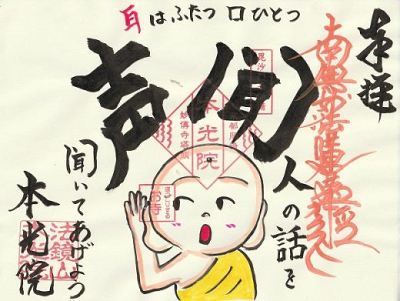 耳はふたつ 口ひとつ
奉拝
南無妙法蓮華経
声聞
人の話を
聞いてあげよう
本光院
本光院
妙傳寺塔頭
法鏡山